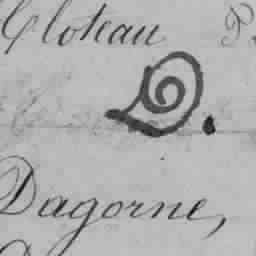 Cloteau
D.
Dagorne,